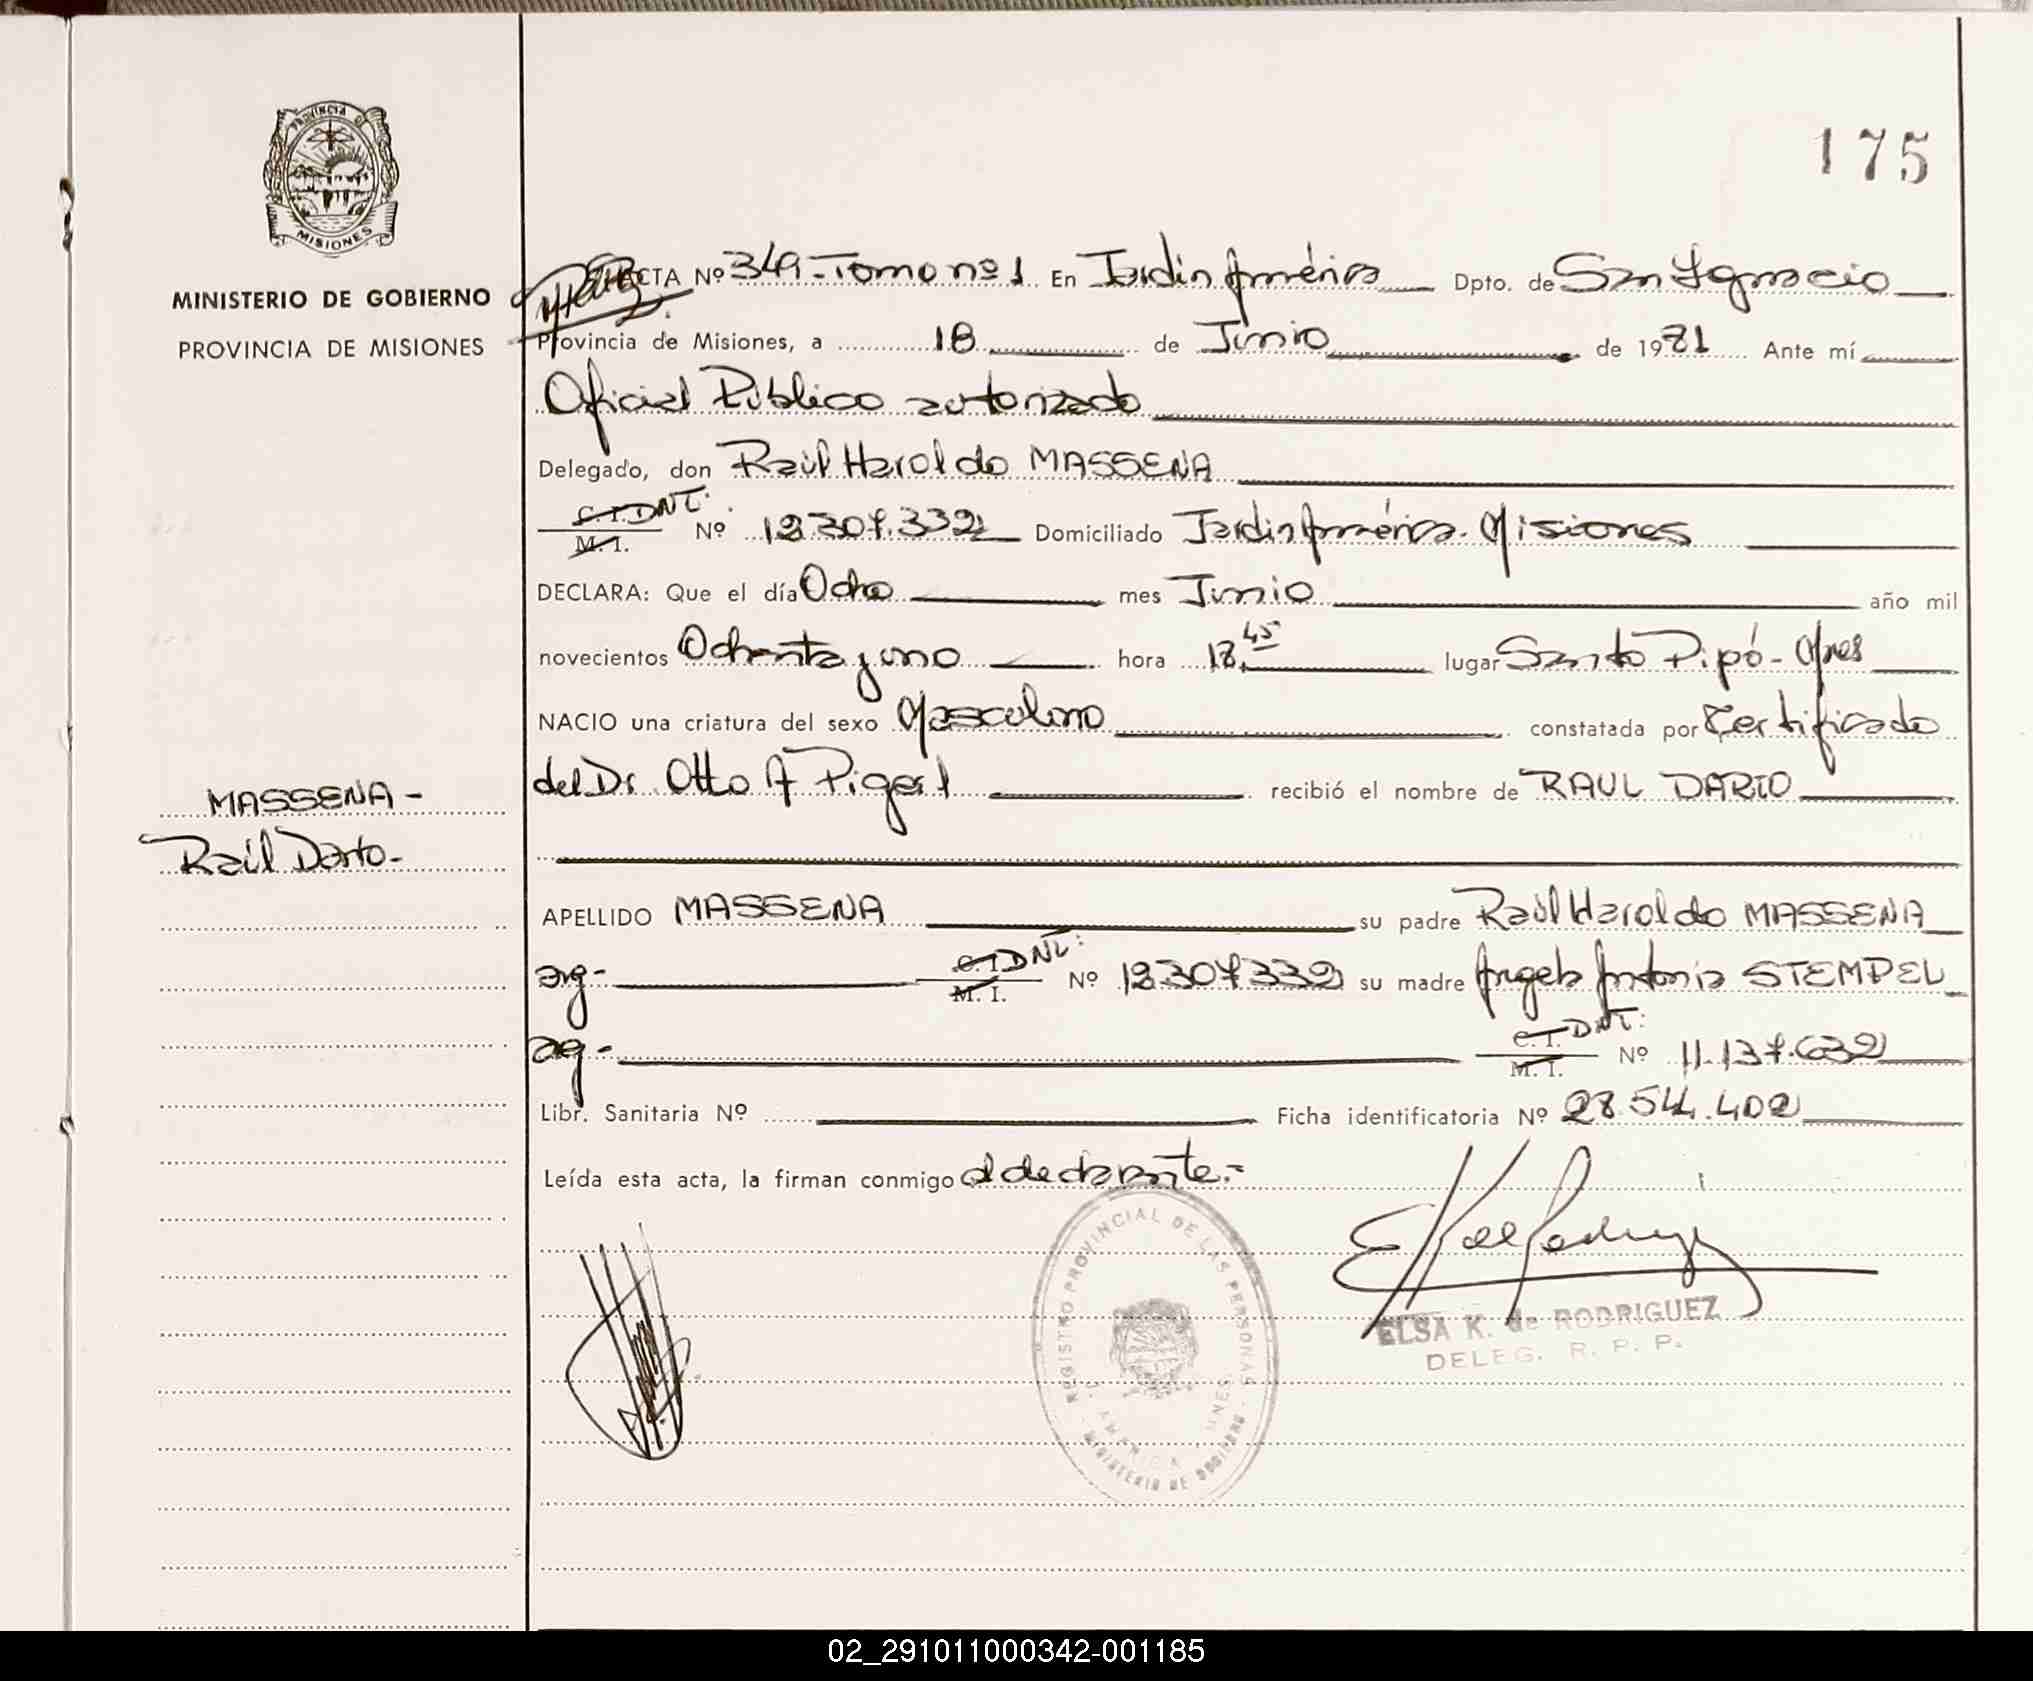 PROVINCIA DE
MISIONES
MINISTERIO DE GOBIERNO
PROVINCIA DE MISIONES
175
ACTA Nº 349 - Tomo nº 1 En Jardín América Dpto. de San Ignacio
Provincia de Misiones, a 18 de Junio de 1981 Ante mí
Oficial Público autorizado
Delegado, don Raúl Haroldo MASSENA
C.I. DNI: Nº 12.307.332 Domiciliado Jardín América. Misiones
M. I.
DECLARA: Que el día Ocho mes Junio año mil
novecientos Ochenta y uno hora 18,45 lugar Santo Pipó - Mnes
NACIO una criatura del sexo Masculino constatada por Certificado
del Dr. Otto A recibió el nombre de RAUL DARIO
MASSENA -
Raúl Darío -
APELLIDO MASSENA su padre Raúl Haroldo MASSENA
arg - C.I. DNI: Nº 12.307.332 su madre Angela Antonia STEMPEL
M. I.
arg - C.I. DNI: Nº 11.137.632
M. I.
Libr. Sanitaria Nº Ficha identificatoria Nº 28.544.402
Leída esta acta, la firman conmigo el declarante. -
REGISTRO PROVINCIAL DE LAS PERSONAS
MINISTERIO DE GOBIERNO
ELSA K. de RODRIGUEZ
DELEG. R. P. P.
02_291011000342-001185